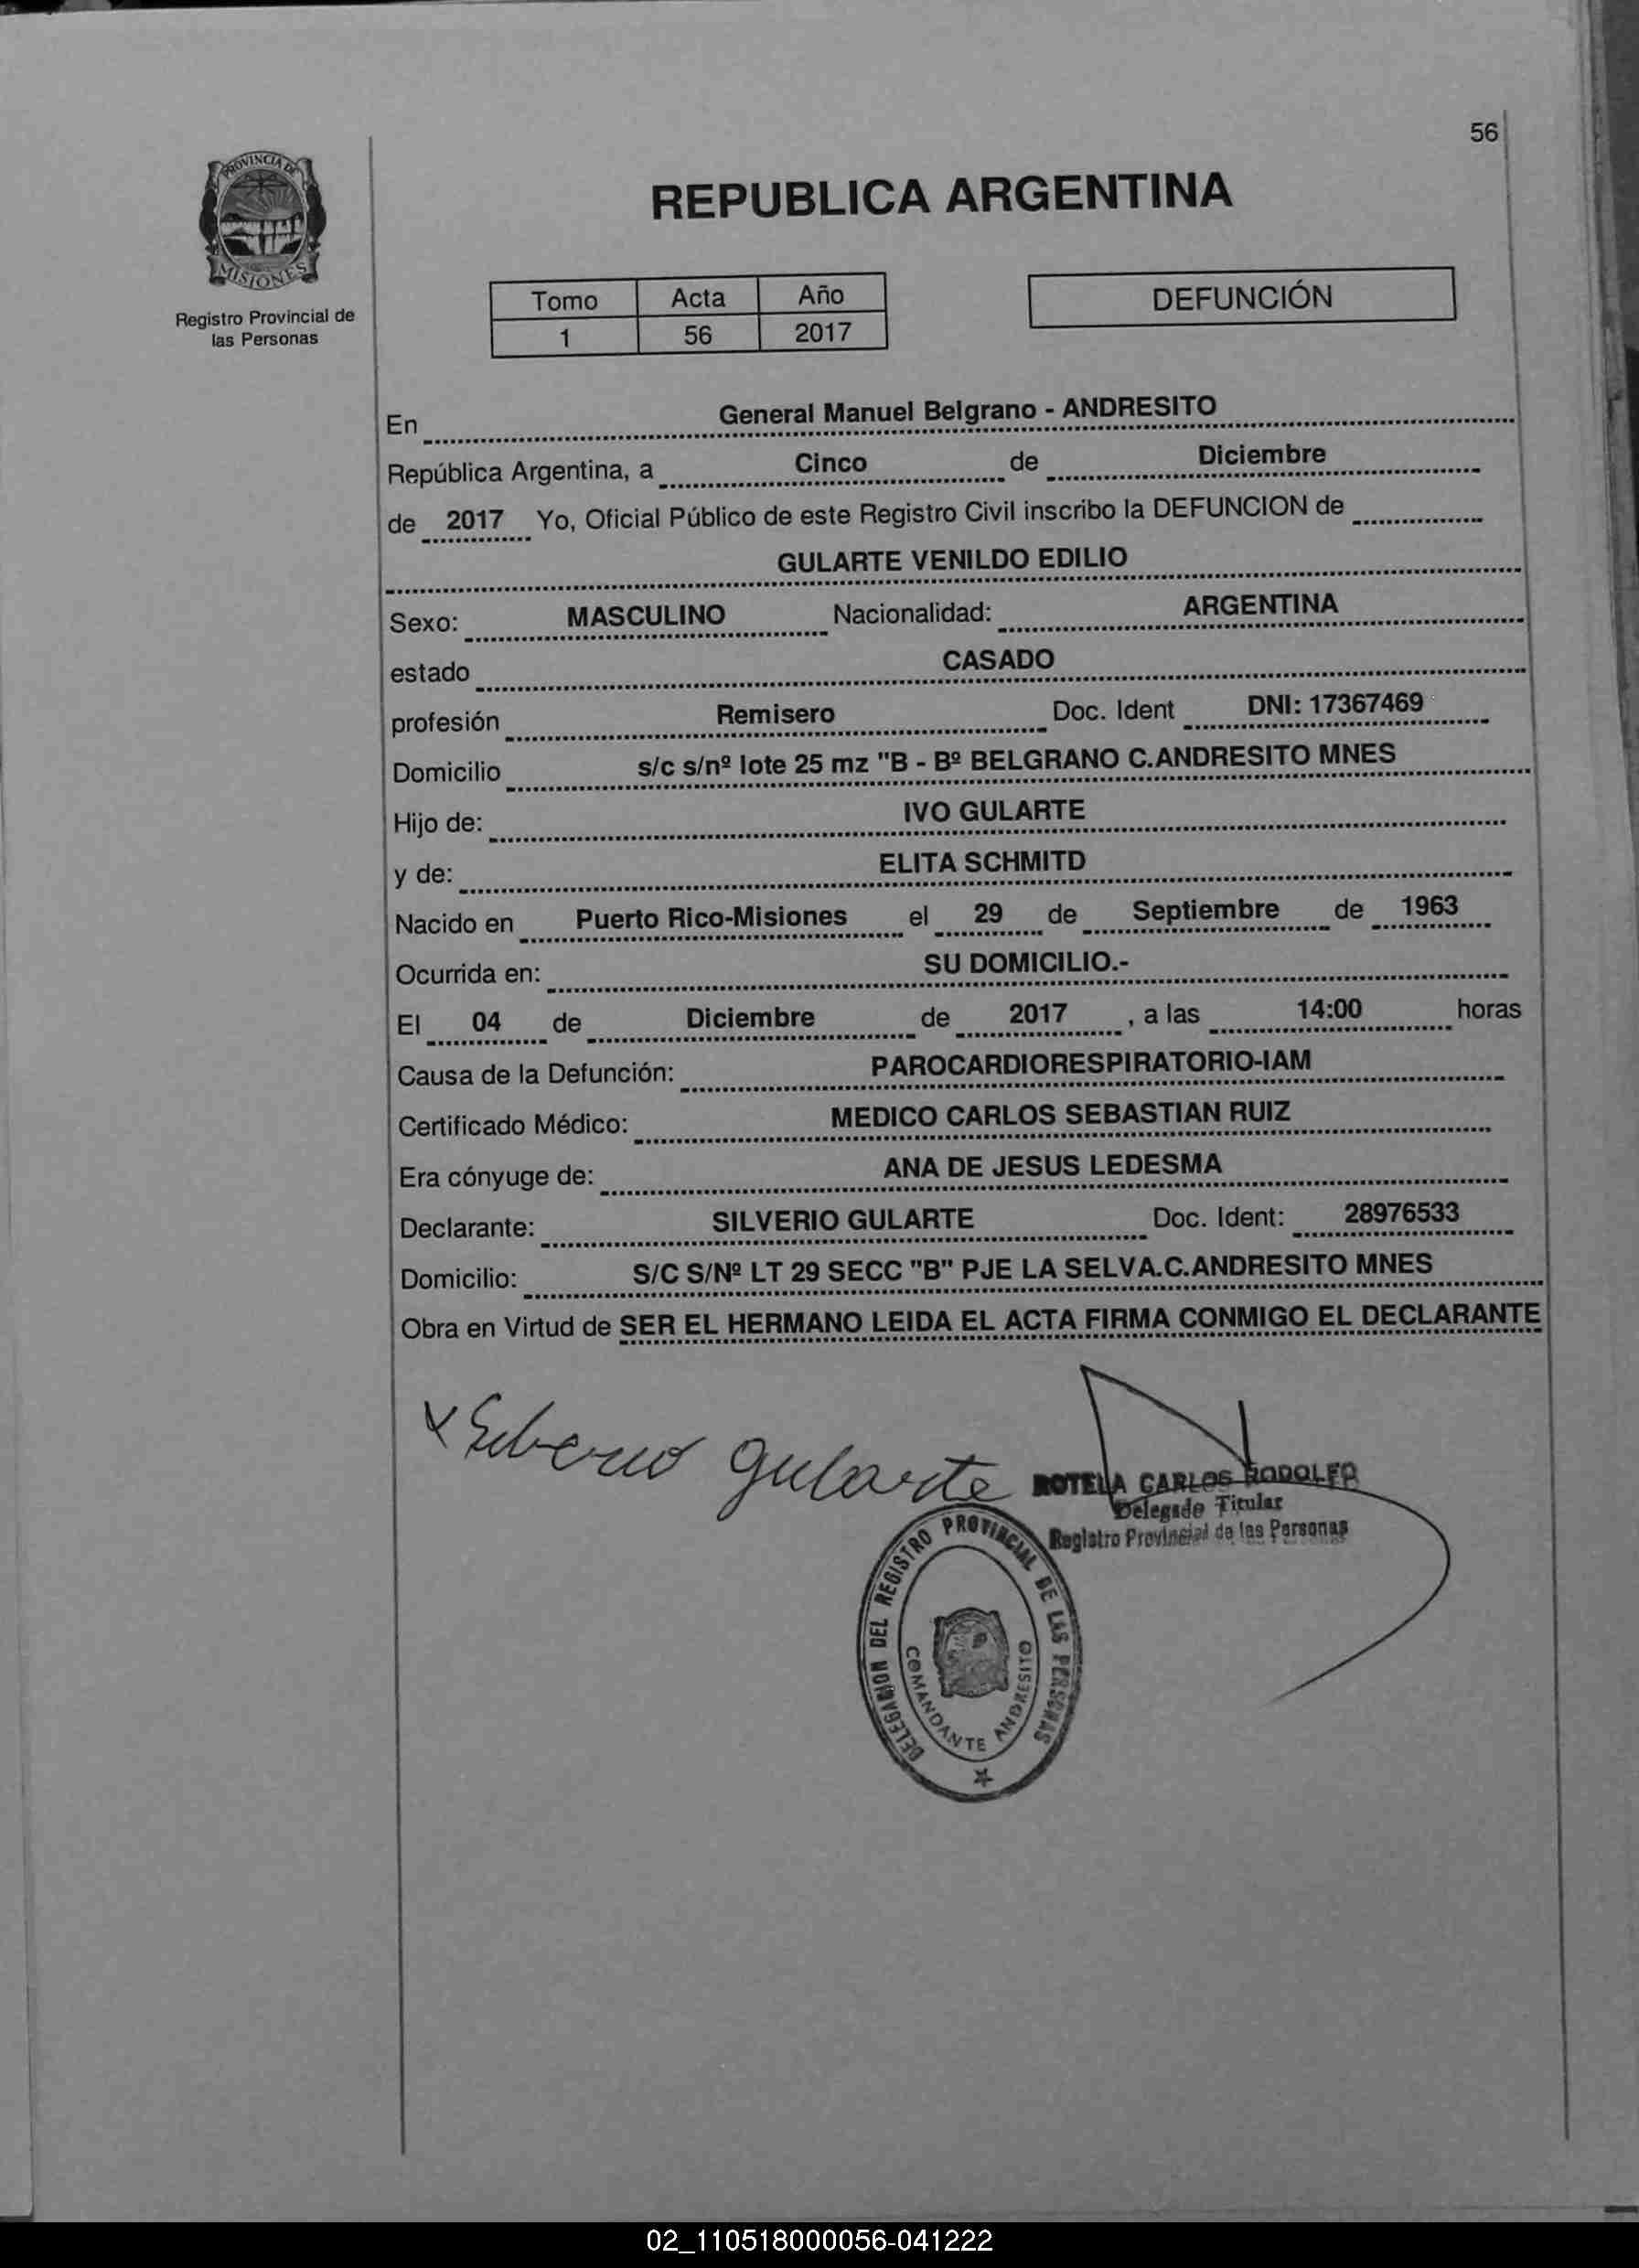 56
PROVINCIA DE
MISIONES
Registro Provincial de
las Personas
REPUBLICA ARGENTINA
Tomo Acta Año
1 56 2017
DEFUNCIÓN
En General Manuel Belgrano - ANDRESITO
República Argentina, a Cinco de Diciembre
de 2017 Yo, Oficial Público de este Registro Civil inscribo la DEFUNCION de
GULARTE VENILDO EDILIO
Sexo: MASCULINO Nacionalidad: ARGENTINA
estado CASADO
profesión Remisero Doc. Ident DNI: 17367469
Domicilio s/c s/nº lote 25 mz "B - Bº BELGRANO C.ANDRESITO MNES
Hijo de: IVO GULARTE
y de: ELITA SCHMITD
Nacido en Puerto Rico-Misiones el 29 de Septiembre de 1963
Ocurrida en: SU DOMICILIO.-
El 04 de Diciembre de 2017 , a las 14:00 horas
Causa de la Defunción: PAROCARDIORESPIRATORIO-IAM
Certificado Médico: MEDICO CARLOS SEBASTIAN RUIZ
Era cónyuge de: ANA DE JESUS LEDESMA
Declarante: SILVERIO GULARTE Doc. Ident: 28976533
Domicilio: S/C S/Nº LT 29 SECC "B" PJE LA SELVA.C.ANDRESITO MNES
Obra en Virtud de SER EL HERMANO LEIDA EL ACTA FIRMA CONMIGO EL DECLARANTE
x Silverio gularte
ROTELA CARLOS RODOLFO
Delegado Titular
Registro Provincial de las Personas
DELEGACION DEL REGISTRO PROVINCIAL DE LAS PERSONAS
COMANDANTE ANDRESITO
02_110518000056-041222